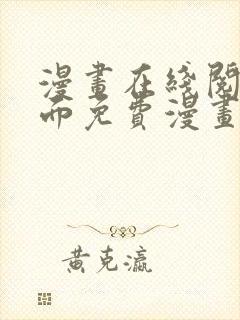 漫畫在綫閱
而免費漫畫
黃克瀛